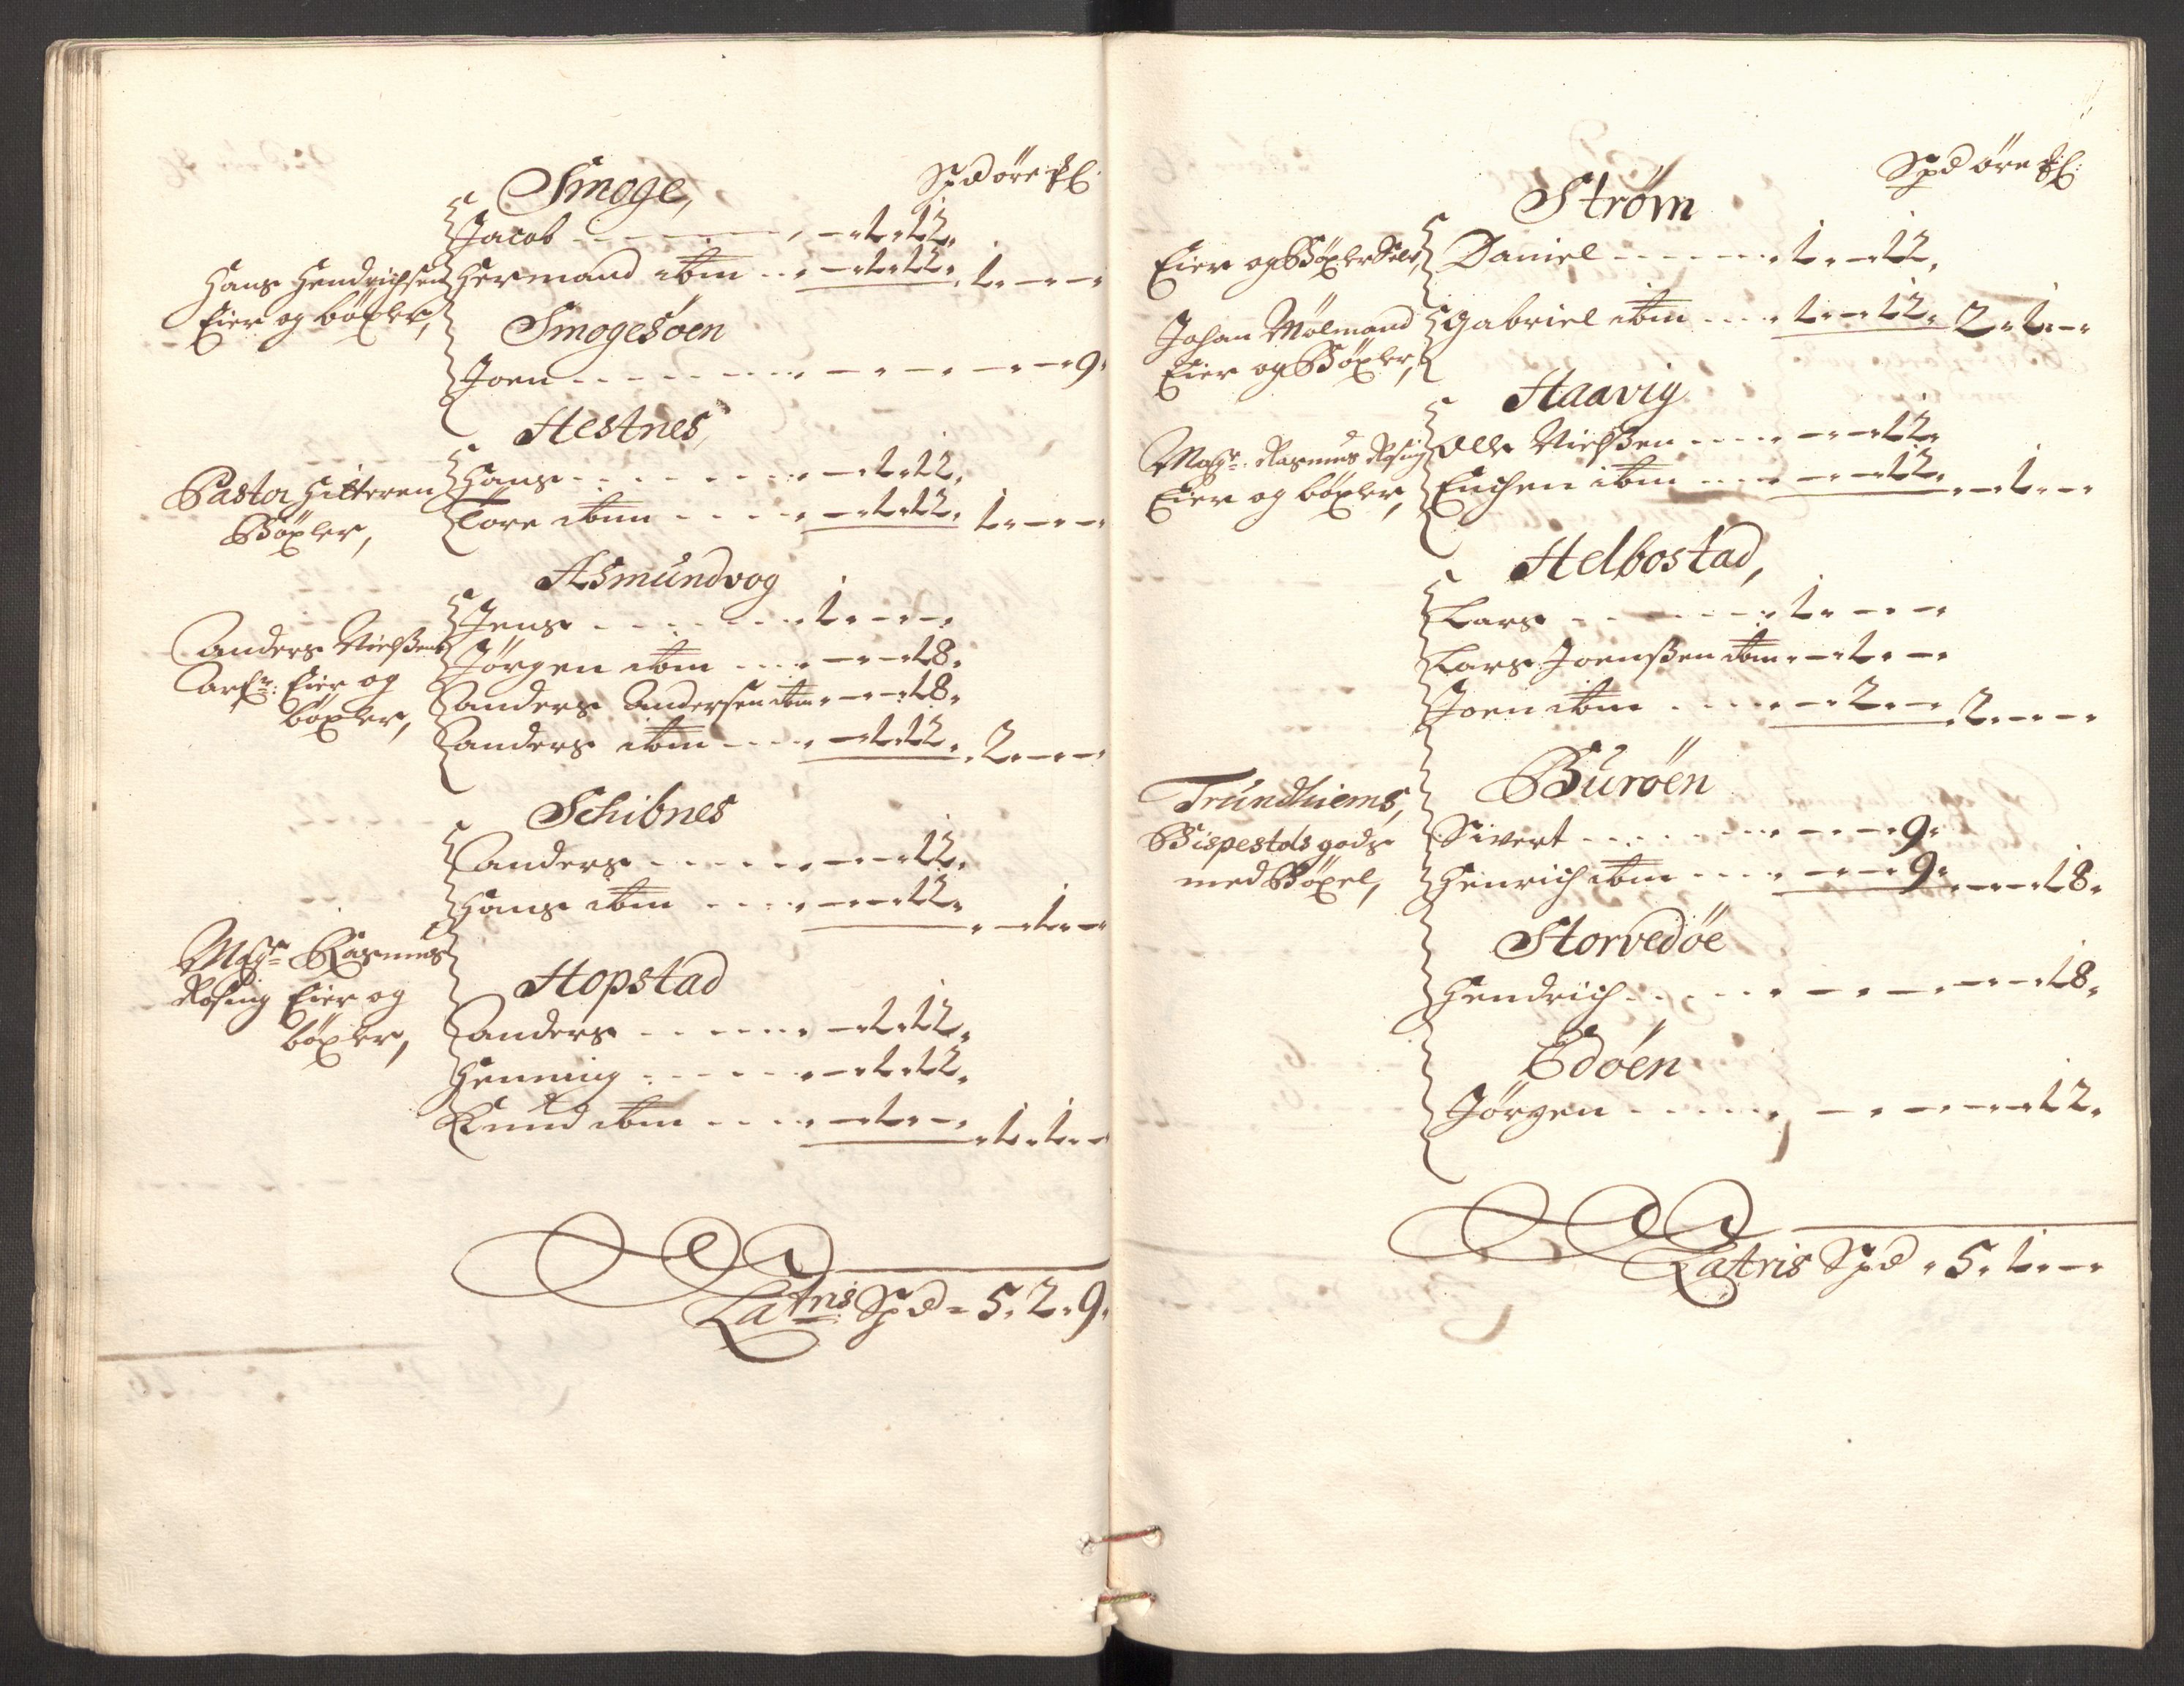 Spd öre
Smoge,
Jacob - - - - „ - „ 1 „ 12 „
Hans Hendrichsen Hermand ibm - - „ - „ 1 „ 12 „ 1 „ - „ -
Eier og böxler,
Smogesöen
Joen - - - - - - - „ - „ - „ - „ - „ 9 „
Hestnes,
Hans - - - - - „ - „ 1 „ 12 „
Pastor Hitteren
Tore ibm - - - - „ - „ 1 „ 12 „ 1 „ - „ -
Böxler,
Asmundvog
Jens - - - - - „ 1 „ - „ - „
Anders Nielßens
Jörgen ibm - - - „ - „ - „ 18 „
Arfr: Eier og
Anders Andersen ibm „ - „ - „ 18 „
böxler,
Anders ibm - - - „ - „ 1 „ 12 „ 2 „ - „ -
Schibnes
Anders - - - - - „ - „ - „ 12 „
Hans ibm - - - - „ - „ - „ 12 „ - „ 1 „ -
Magr Rasmus
Hopstad
Rosing Eier og
Anders - - - - - „ - „ 1 „ 12 „
böxler,
Henning - - - - - „ - „ 1 „ 12 „
Knud ibm - - - - „ - „ 1 „ - „ 1 „ 1 „ -
Latris Spd „ 5 „ 2 „ 9 „
Spd öre
Ström
Eier og Böxler Selv, Daniel - - - - - „ 1 „ - „ 12 „
Johan Mølmand Gabriel ibm - - - „ 1 „ - „ 12 „ 2 „ 1 „ - „
Eier og Böxler,
Haavig
Magr: Rasmus Rosing Olle Nielßen - - - - „ - „ - „ 12 „
Eier og böxler, Enchen ibm - - - „ - „ - „ 12 „ - „ 1 „ - „
Helbostad,
Lars - - - - - - „ 1 „ - „ - „
Lars Joenßen ibm „ - „ 1 „ - „
Joen ibm - - - - „ - „ 2 „ - „ 2 „ - „ - „
Buröen
Trundhiems,
Sivert - - - - - „ - „ - „ 9 „
Bispestols gods
Henrich ibm - - - „ - „ - „ 9 „ - „ - „ 18 „
med Böxel,
Storvedöe
Hendrich - - - - „ - „ - „ - „ - „ 18 „
Edöen
Jörgen - - - - „ - „ - „ - „ - „ 12 „
Latris Spd „ 5 „ 1 „ - „